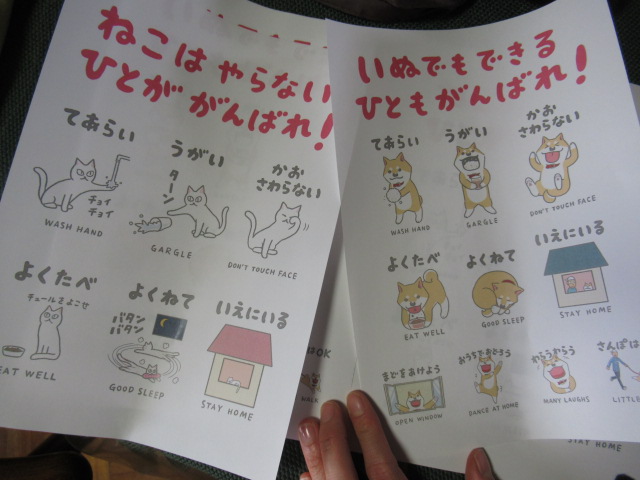 ねこは やらない
ひとが がんばれ!
てあらい
チョイ
チョイ
WASH HAND
うがい
ターン
GARGLE
かお
さわらない
DON'T TOUCH FACE
よくたべ
チュールをよこせ
EAT WELL
よくねて
バタン
バタン
GOOD SLEEP
いえにいる
STAY HOME
いぬでもできる
ひともがんばれ!
てあらい
WASH HAND
うがい
GARGLE
かお
さわらない
DON'T TOUCH FACE
よくたべ
EAT WELL
よくねて
GOOD SLEEP
いえにいる
STAY HOME
まどをあけよう
OPEN WINDOW
おうちでおどろう
DANCE AT HOME
わらうわらう
MANY LAUGHS
さんぽは
LITTLE
はOK
WALK
STAY HOME